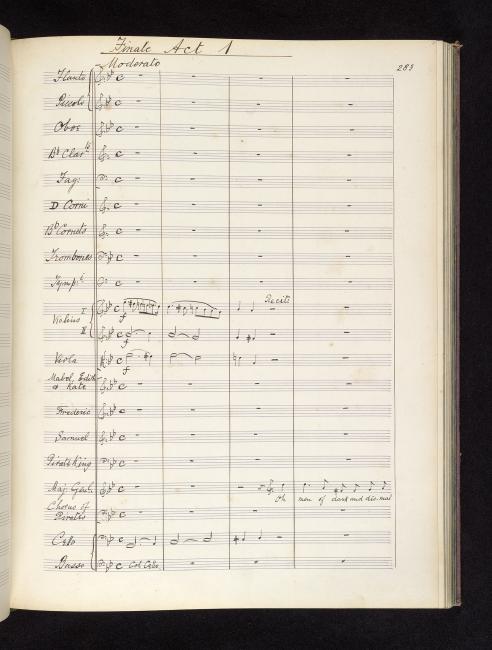 Finale Act 1
Moderato
283
Flauto
Piccolo
Oboe
Bb Clarts
Fag:
D Corni
Bb Cornets
Trombones
Tymp:
Violins I
II
Recit:
Viola
Mabel, Edith
& Kate
Frederic
Samuel
Pirate King
Maj: Genl.
Oh men of dark and dis-mal
Chorus of
Pirates
Cello
Basso
Col Cello